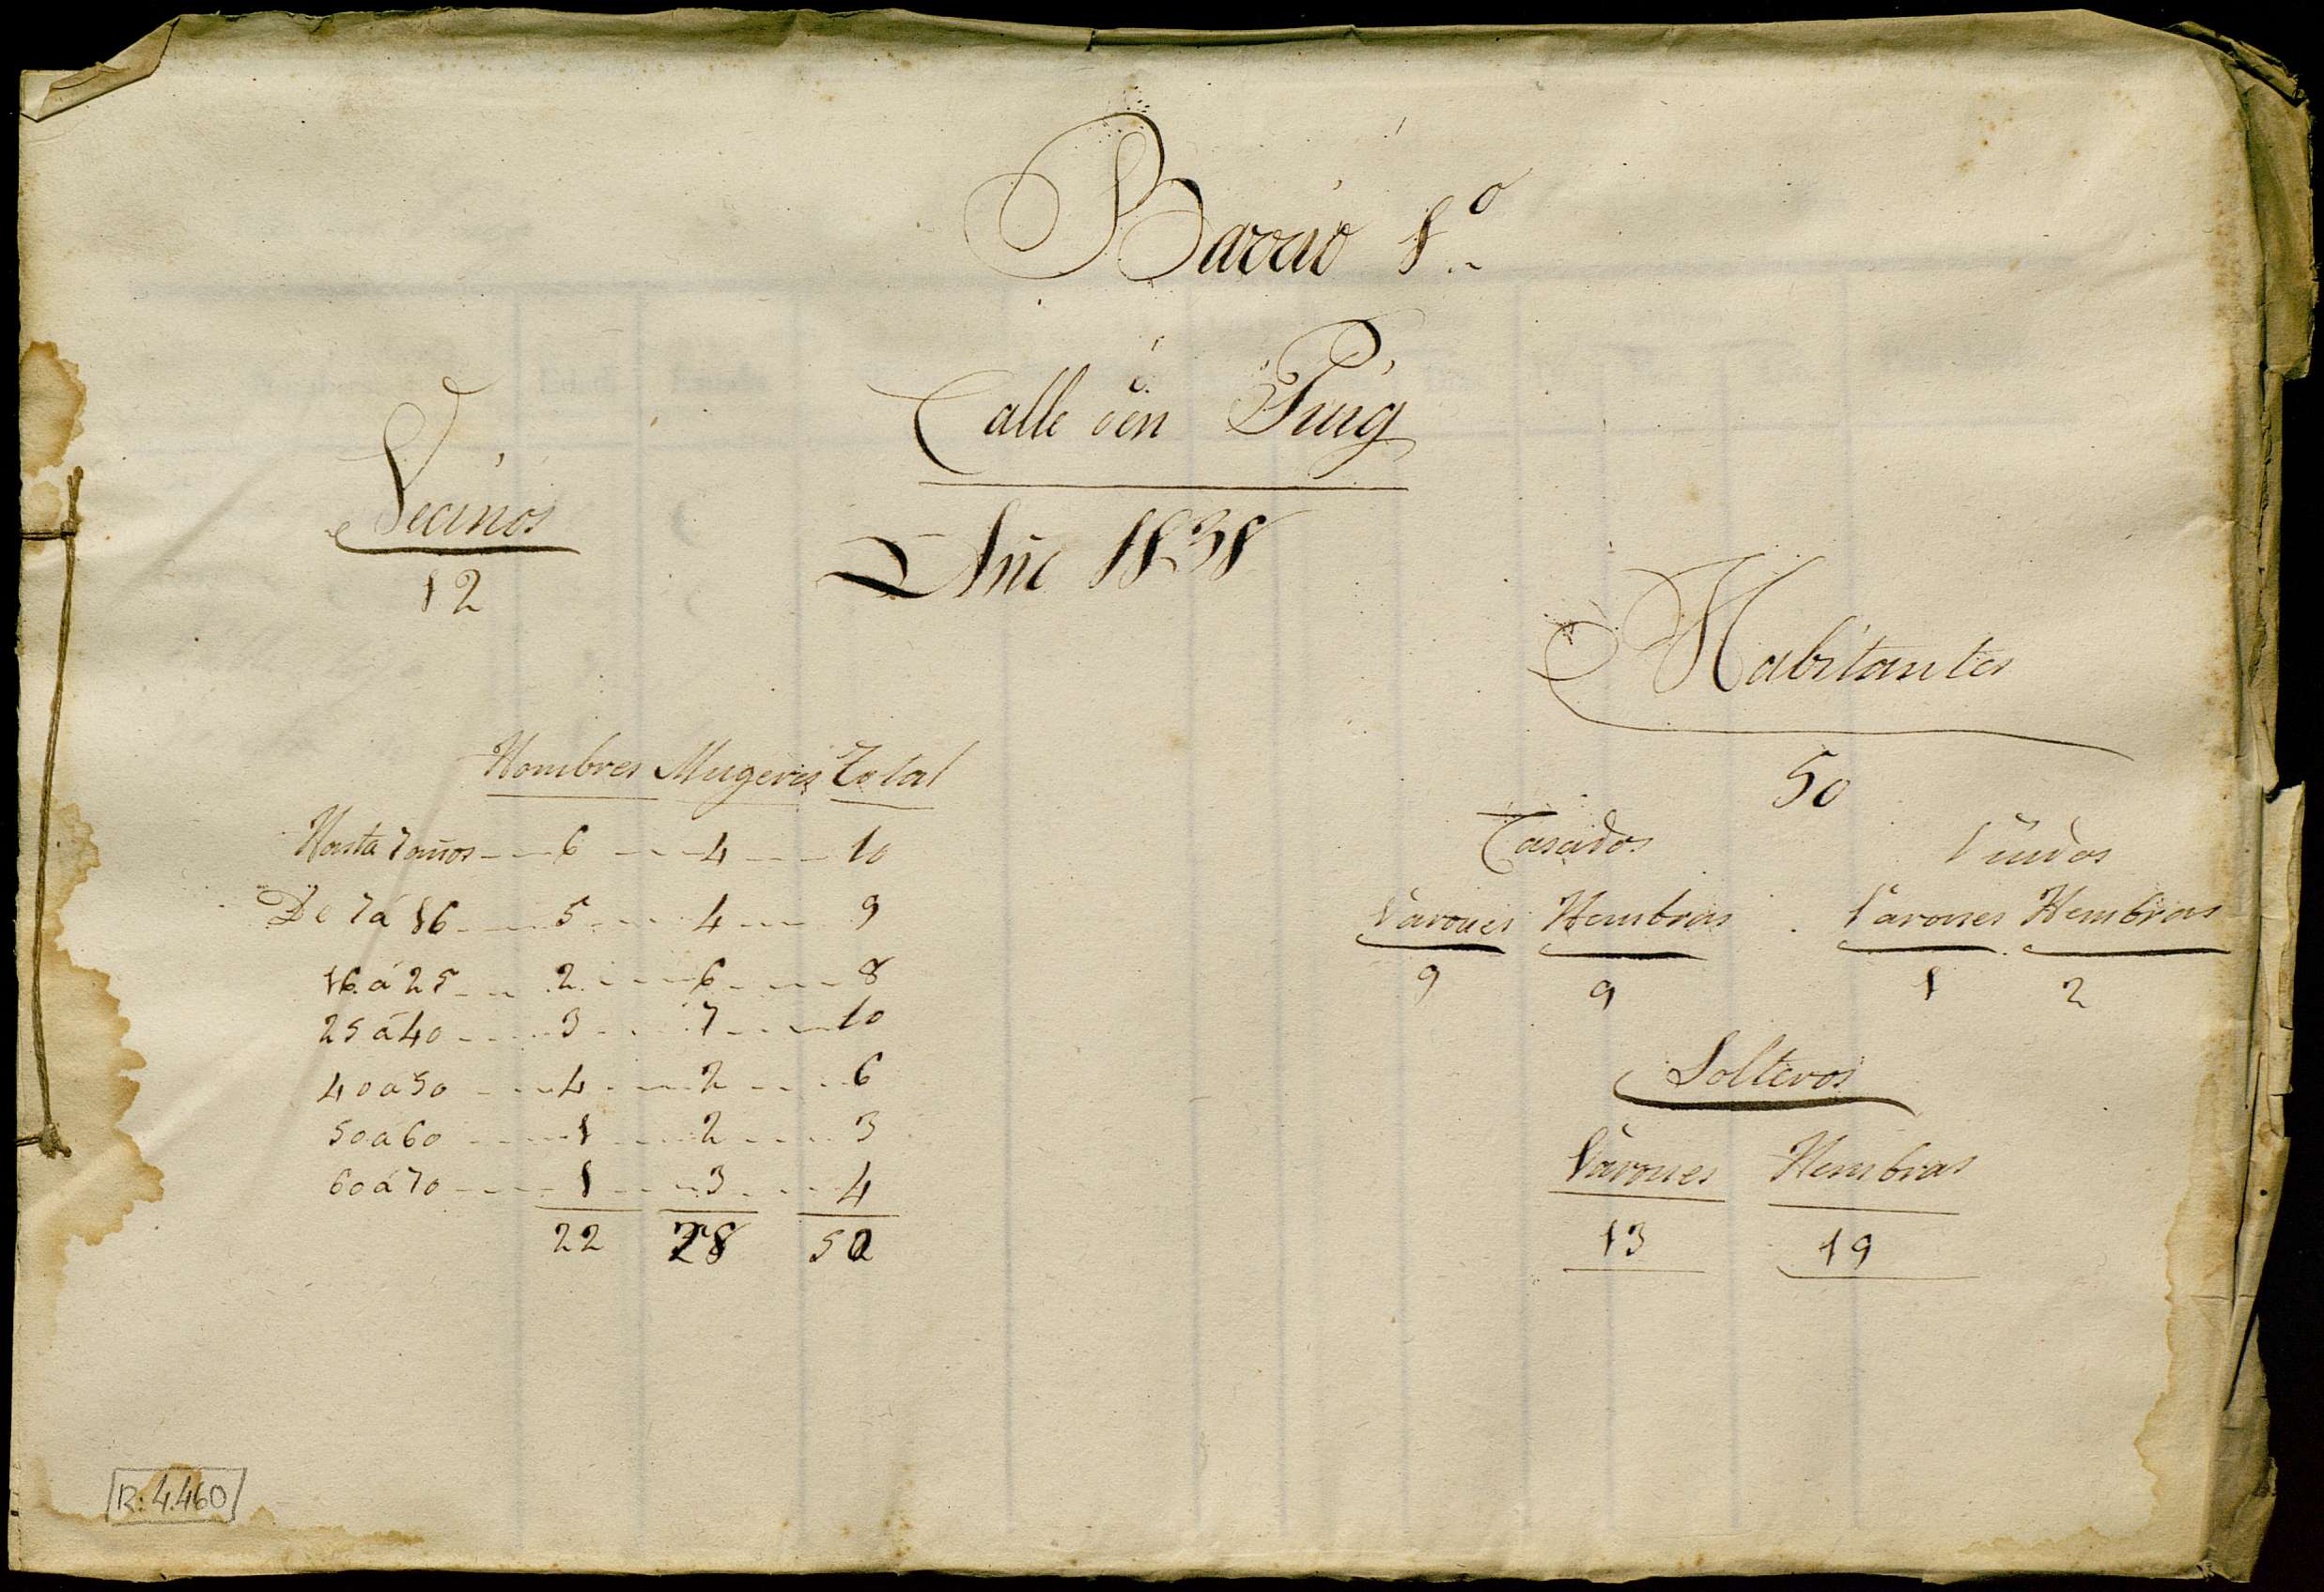 Barrio 1º
Calle den Puig
Año 1838
Vecinos
12
Habitantes
50
Hombres Mugeres Total
Hasta 7 años 6 4 10
De 7 á 16 5 4 9
16 á 25 2 6 8
25 á 40 3 7 10
40 á 50 4 2 6
50 á 60 1 2 3
60 á 70 1 3 4
22 28 50
Casados Viudos
Varones Hembras Varones Hembras
9 9 1 2
Solteros
Varones Hembras
13 19
R: 4.460